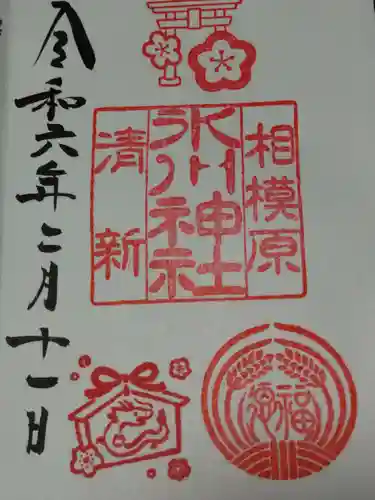 相模原
氷川神社
清新
令和六年二月十一日
福